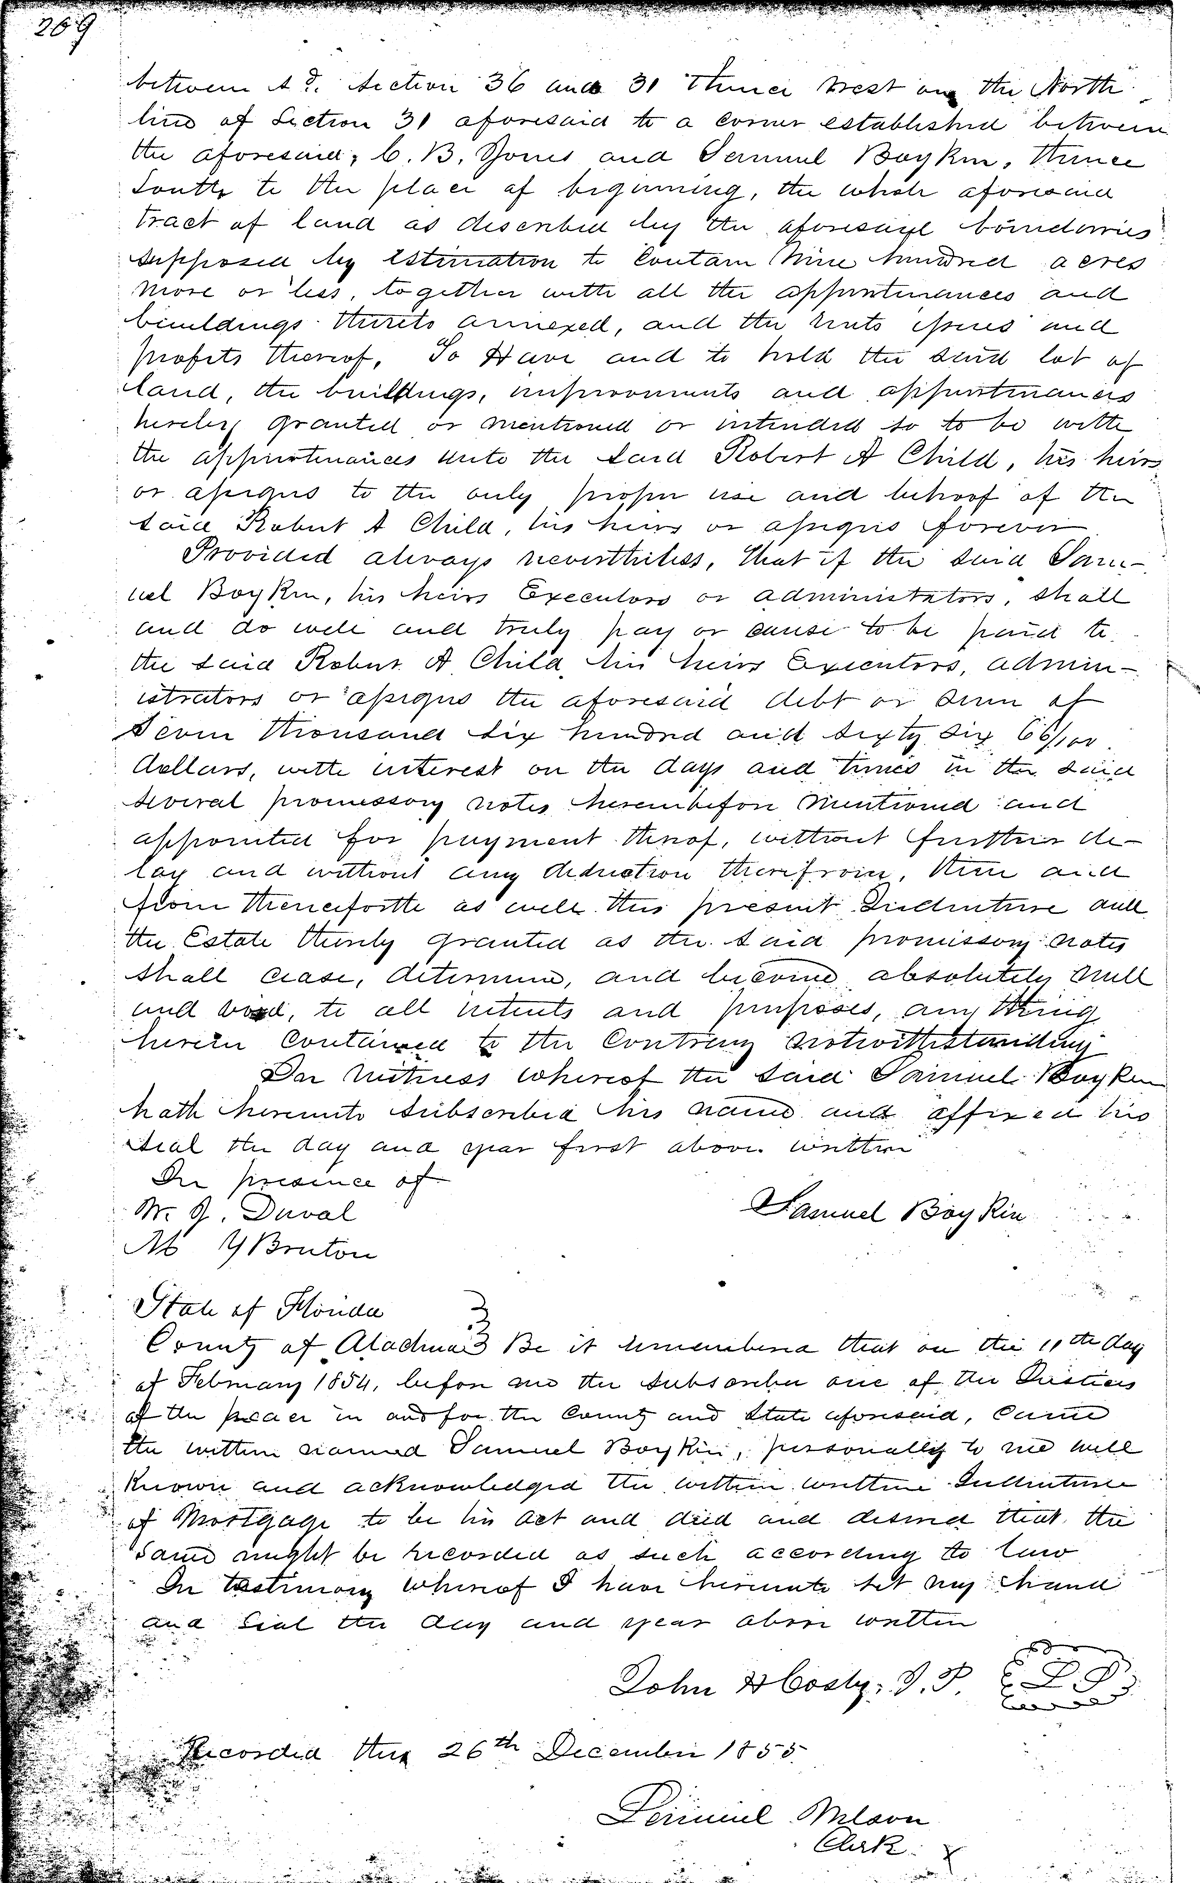 269
between sd. Section 36 and 31 thence West on the North
line of Section 31 aforesaid to a corner established between
the aforesaid, C. B. Jones and Samuel Boykin, thence
South to the place of beginning, the whole aforesaid
tract of land as described by the aforesaid boundarries
supposed by estimation to contain Nine hundred acres
more or less, together with all the appurtenances and
buildings thereto annexed, and the rents issues and
profits thereof, To Have and to hold the said lot of
land, the buildings, improvements and appurtenances
hereby granted or mentioned or intended so to be with
the appurtenances unto the said Robert A Child, his heirs
or assigns to the only proper use and behoof of the
said Robert A Child, his heirs or assigns forever
Provided always nevertheless, that if the said Sam-
uel Boykin, his heirs Executors or administrators, shall
and do well and truly pay or cause to be paid to
the said Robert A Child, his heirs Executors, admin-
istrators or assigns the aforesaid debt or sum of
Seven thousand six hundred and sixty six 66/100
dollars, with interest on the days and times in the said
several promissory notes hereinbefore mentioned and
appointed for payment thereof, without further de-
lay and without any deduction therefrom, then and
from thenceforth as well this present Indenture and
the Estate thereby granted as the said promissory notes
shall cease, determine, and become absolutely null
and void, to all intents and purposes, any thing
herein contained to the contrary notwithstanding
In witness whereof the said Samuel Boykin
hath hereunto subscribed his name and affixed his
seal the day and year first above written
In presence of
W. J. Duval
Samuel Boykin
M Y Bruton
State of Florida
County of Alachua Be it remembered that on the 11th day
of February 1854, before me the subscriber one of the Justices
of the peace in and for the County and State aforesaid, came
the within named Samuel Boykin, personally to me well
known and acknowledged the within written Indenture
of Mortgage to be his act and deed and desired that the
same might be recorded as such according to law
In testimony whereof I have hereunto set my hand
and seal the day and year above written
John H Cosby, J. P.
Recorded this 26th December 1855
Lemuel Wilson
Clerk